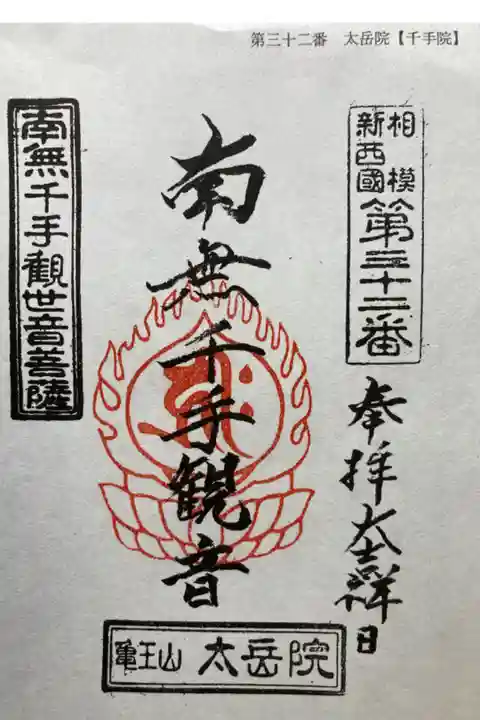 第三十二番　太岳院【千手院】
相模
新西國
第三十二番
奉拝 大吉祥日
南無千手観音
南無千手觀世音菩薩
亀王山 太岳院